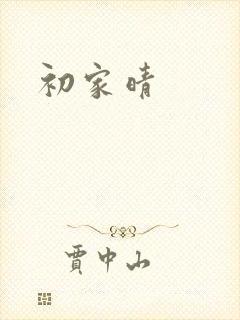 初家晴
賈中山